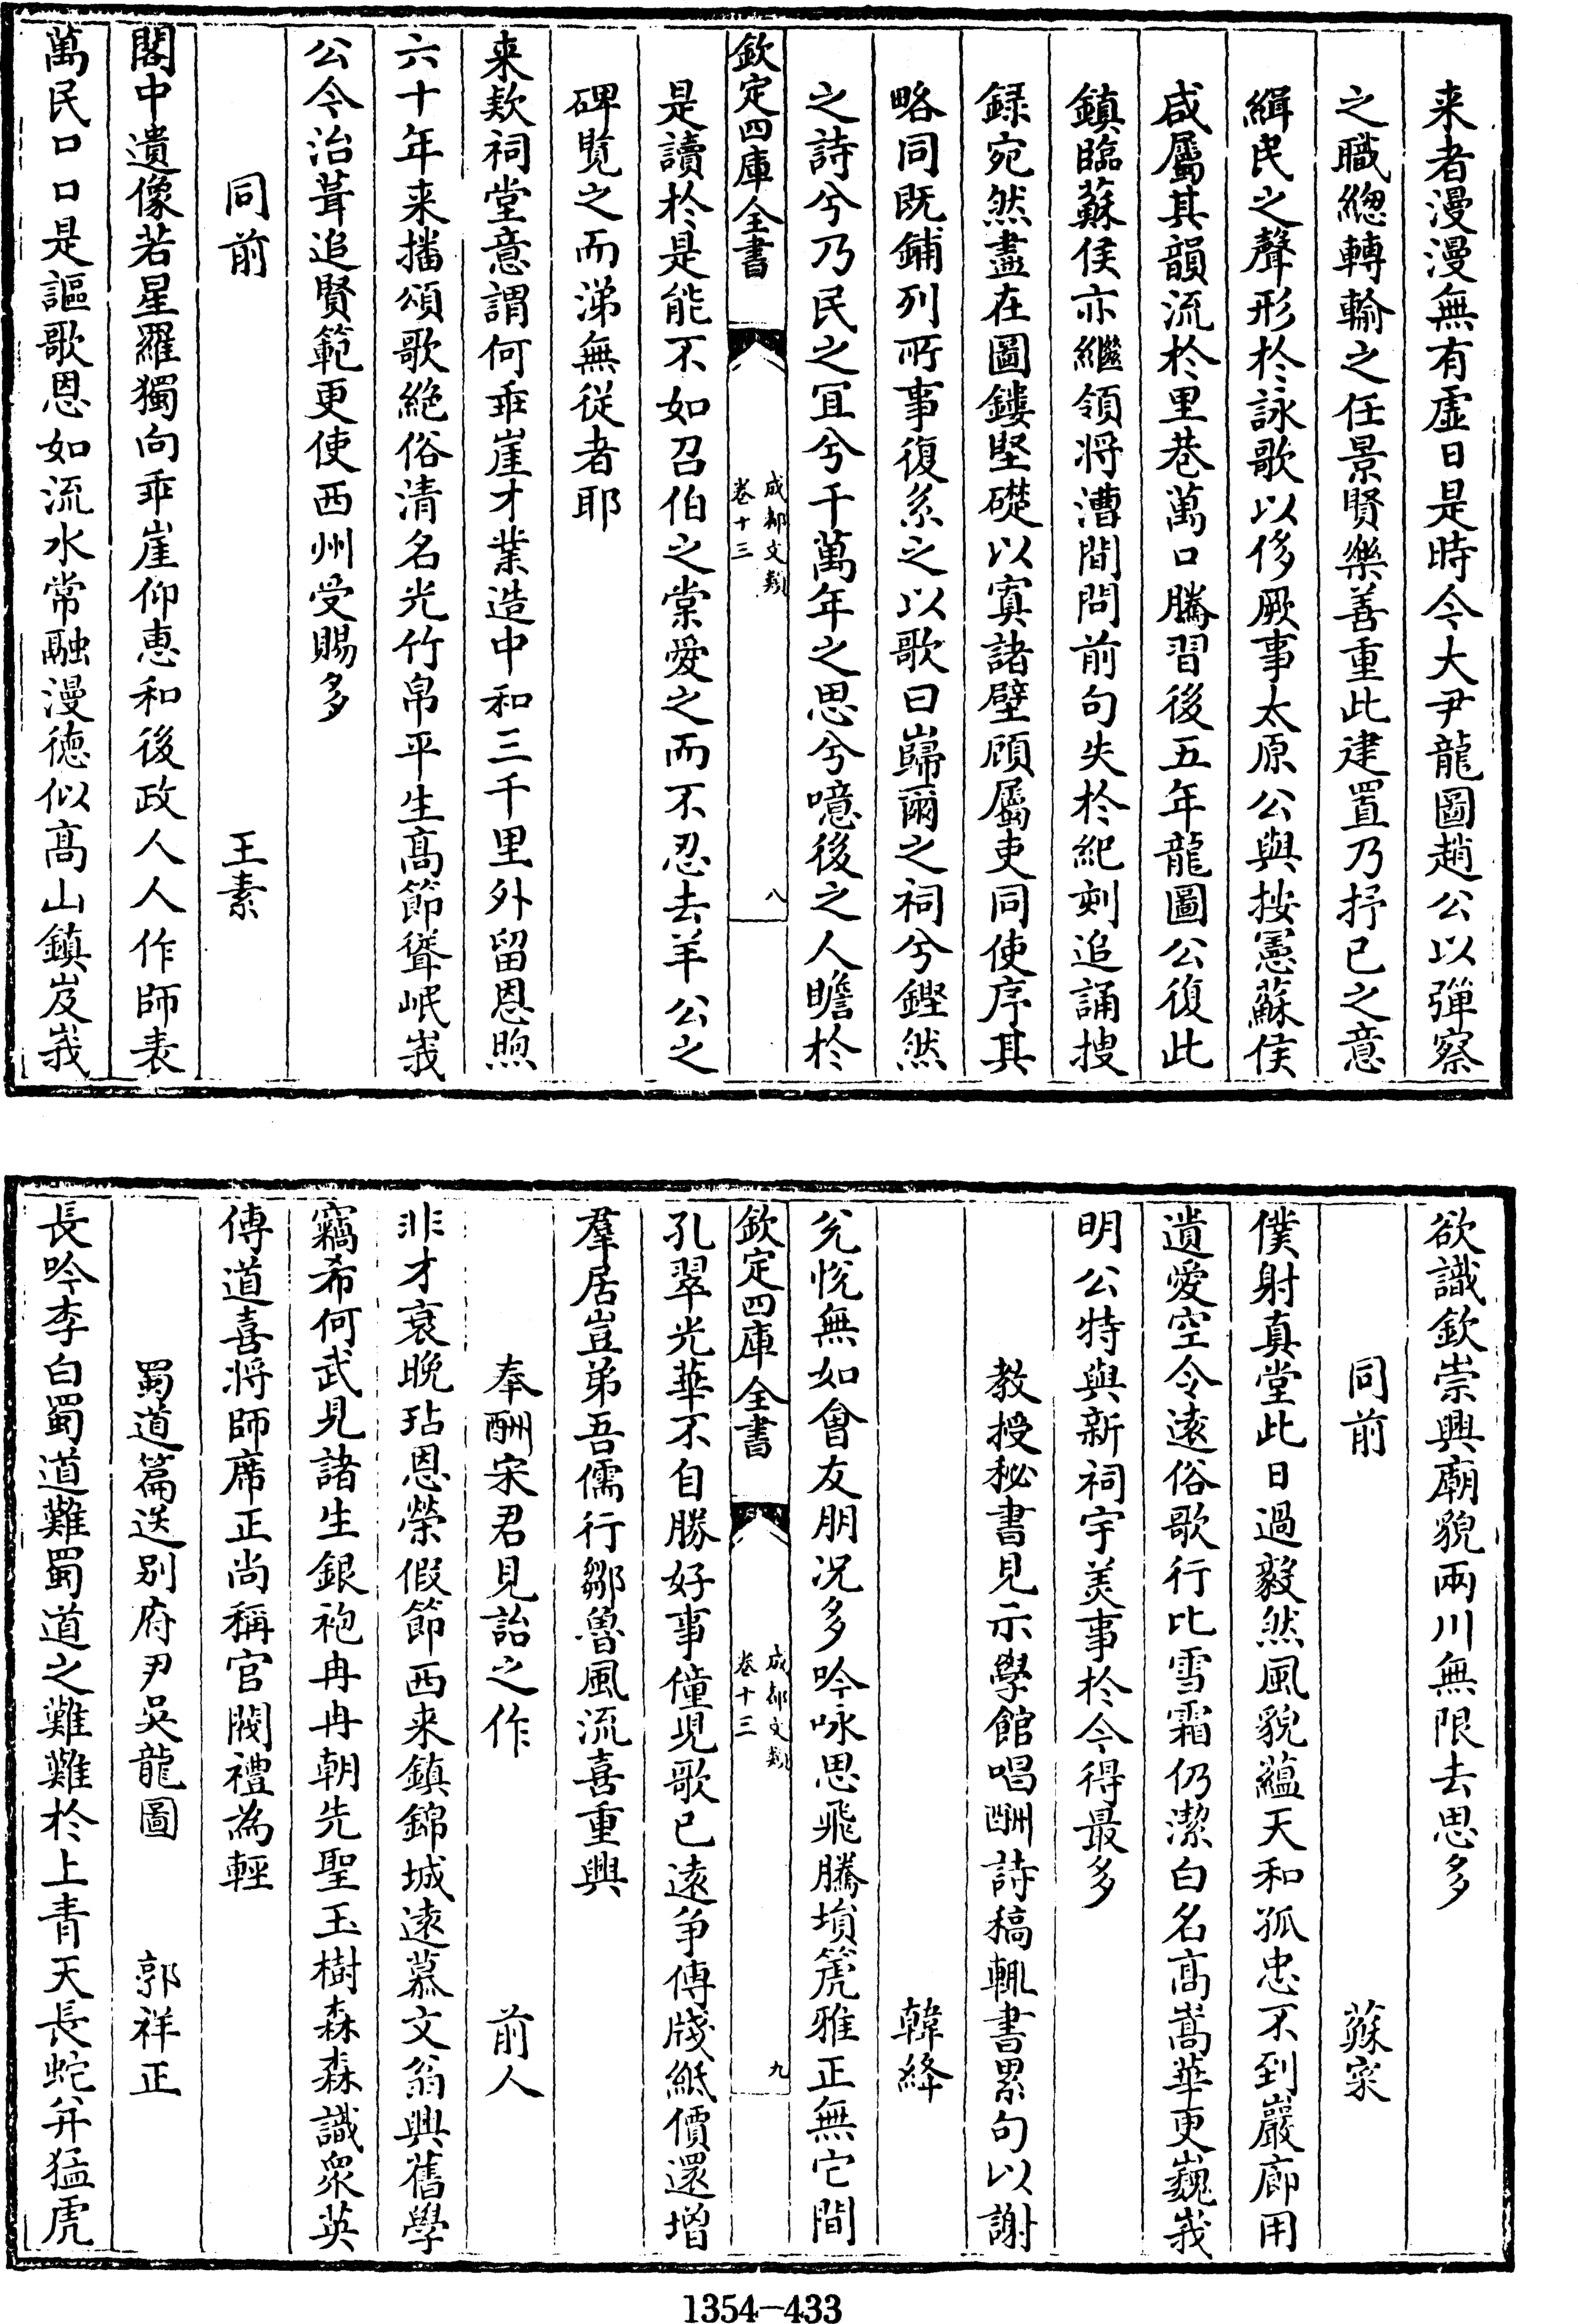 来者漫漫無有虚日是時今大尹龍圖趙公以彈察
之職緫轉輸之任景賢樂善重此建置乃抒已之意
緝民之聲形於詠歌以侈厥事太原公與按憲蘇侯
咸屬其韻流於里巷萬口騰習後五年龍圖公復此
鎮臨蘇侯亦繼領將漕間問前句失於紀刻追誦搜
録宛然盡在圖鏤堅礎以寘諸壁顧屬吏同使序其
略同既鋪列所事復系之以歌曰巋爾之祠兮鏗然
之詩兮乃民之冝兮千萬年之思兮噫後之人瞻於
欽定四庫全書
成都文類
卷十三
八
是讀於是能不如召伯之棠愛之而不忍去羊公之
碑覧之而涕無従者耶
来欵祠堂意謂何乖崖才業造中和三千里外留恩煦
六十年来播頌歌絶俗清名光竹帛平生髙節聳岷峩
公今治葺追賢範更使西州受賜多
同前 王素
閣中遺像若星羅獨向乖崖仰惠和後政人人作師表
萬民口口是謳歌恩如流水常融漫徳似髙山鎮岌峩
欲識欽崇興廟貌兩川無限去思多
同前 蘇寀
僕射真堂此日過毅然風貌藴天和孤忠不到巖廊用
遺愛空令逺俗歌行比雪霜仍潔白名髙嵩華更巍峩
明公特與新祠宇美事於今得最多
教授秘書見示學館唱酬詩稿輒書累句以謝
韓絳
兊悦無如㑹友朋况多吟咏思飛騰塤箎雅正無它間
欽定四庫全書
成都文類
卷十三
九
孔翠光華不自勝好事僮児歌已逺争傳牋紙價還増
羣居豈弟吾儒行鄒魯風流喜重興
奉酬宋君見詒之作 前人
非才衰晩玷恩榮假節西来鎮錦城逺慕文翁興舊學
竊希何武見諸生銀袍冉冉朝先聖玉樹森森識衆英
傳道喜將師席正尚稱官閥禮為輕
蜀道篇送别府尹吳龍圖 郭祥正
長吟李白蜀道難蜀道之難難於上青天長蛇并猛虎
1354—433